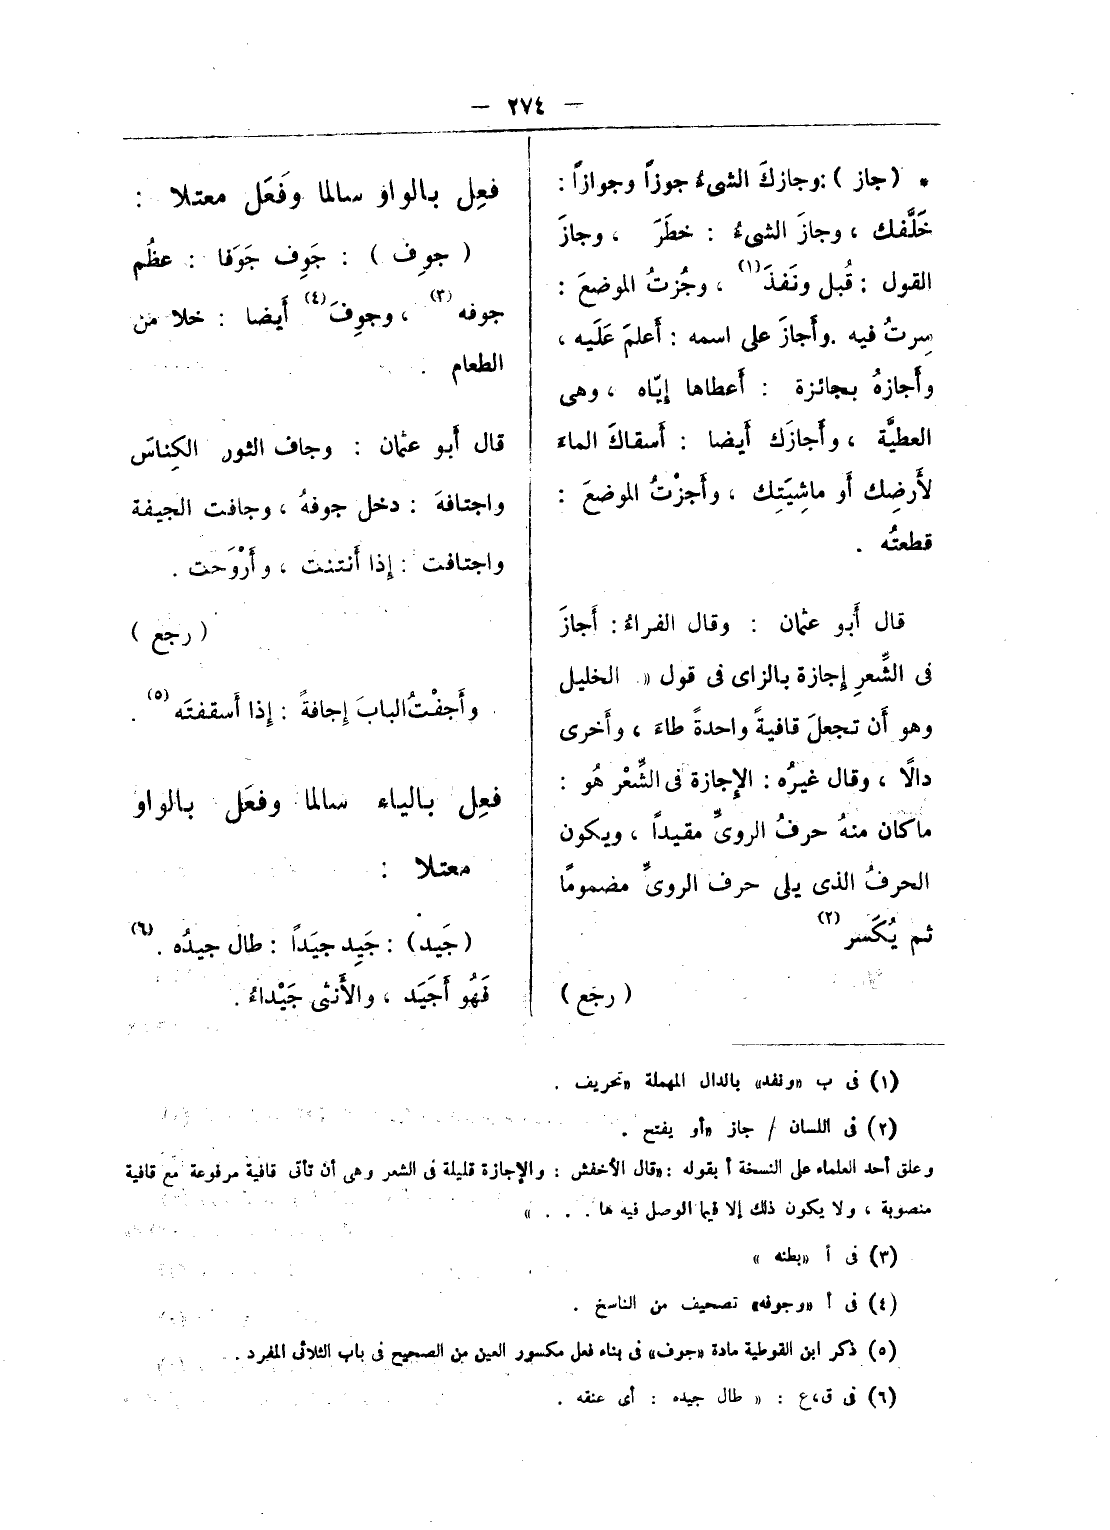 — ٢٧٤ —
* ( جاز ) : وجازكَ الشىءُ جوزاً وجوازاً :
خَلَّفك ، وجازَ الشىءُ : خطَرَ ، وجازَ
القول : قُبل ونَفذَ (١) ، وجُزتُ الموضعَ :
سِرتُ فيه . وأَجازَ على اسمه : أَعلمَ عَلَيه ،
وأَجازهُ بجائزة : أَعطاها إيّاه ، وهى
العطيَّة ، وأَجازَك أَيضا : أَسقاكَ الماءَ
لأَرضِك أَو ماشِيَتِك ، وأَجزْتُ الموضعَ :
قطعتُه .
قال أَبو عثمان : وقال الفراءُ : أَجازَ
فى الشِّعرِ إجازة بالزاى فى قول « الخليل
وهو أَن تجعلَ قافيةً واحدةً طاءَ ، وأَخرى
دالًا ، وقال غيرُه : الإِجازة فى الشِّعْر هُو :
ماكان منهُ حرفُ الروىِّ مقيداً ، ويكون
الحرفُ الذى يلى حرف الروىِّ مضمومًا
ثم يُكَسر (٢)
( رجع )
فعِل بالواو سالما وفَعَل معتلا :
( جوِف ) : جَوِف جَوَفا : عظُم
جوفه (٣) ، وجوِفَ (٤) أَيضا : خلا من
الطعام .
قال أَبو عثمان : وجاف الثور الكِناسَ
واجتافهَ : دخل جوفهُ ، وجافت الجيفة
واجتافت : إذا أَنتنت ، وأَرْوَحت .
( رجع )
وأَجفْتُ البابَ إجافةً : إذا أَسقفتَه (٥) .
فعِل بالياء سالما وفعَل بالواو
معتلا :
( جَيد ) : جَيِد جيَداً : طال جيدُه . (٦)
فَهُو أَجَيَد ، والأَنثى جَيْداءُ .
(١) فى ب «ونفد» بالدال المهملة «تحريف .
(٢) فى اللسان / جاز «أو يفتح .
وعلق أحد العلماء على النسخة أ بقوله : «قال الأخفش : والإجازة قليلة فى الشعر وهى أن تأتى قافية مرفوعة مع قافية
منصوبة ، ولا يكون ذلك إلا فيما الوصل فيه ها . . . »
(٣) فى أ «بطنه »
(٤) فى أ «وجوفه» تصحيف من الناسخ .
(٥) ذكر ابن القوطية مادة «جوف» فى بناء فعل مكسور العين من الصحيح فى باب الثلاثى المفرد .
(٦) فى ق،ع : « طال جيده : أى عنقه .